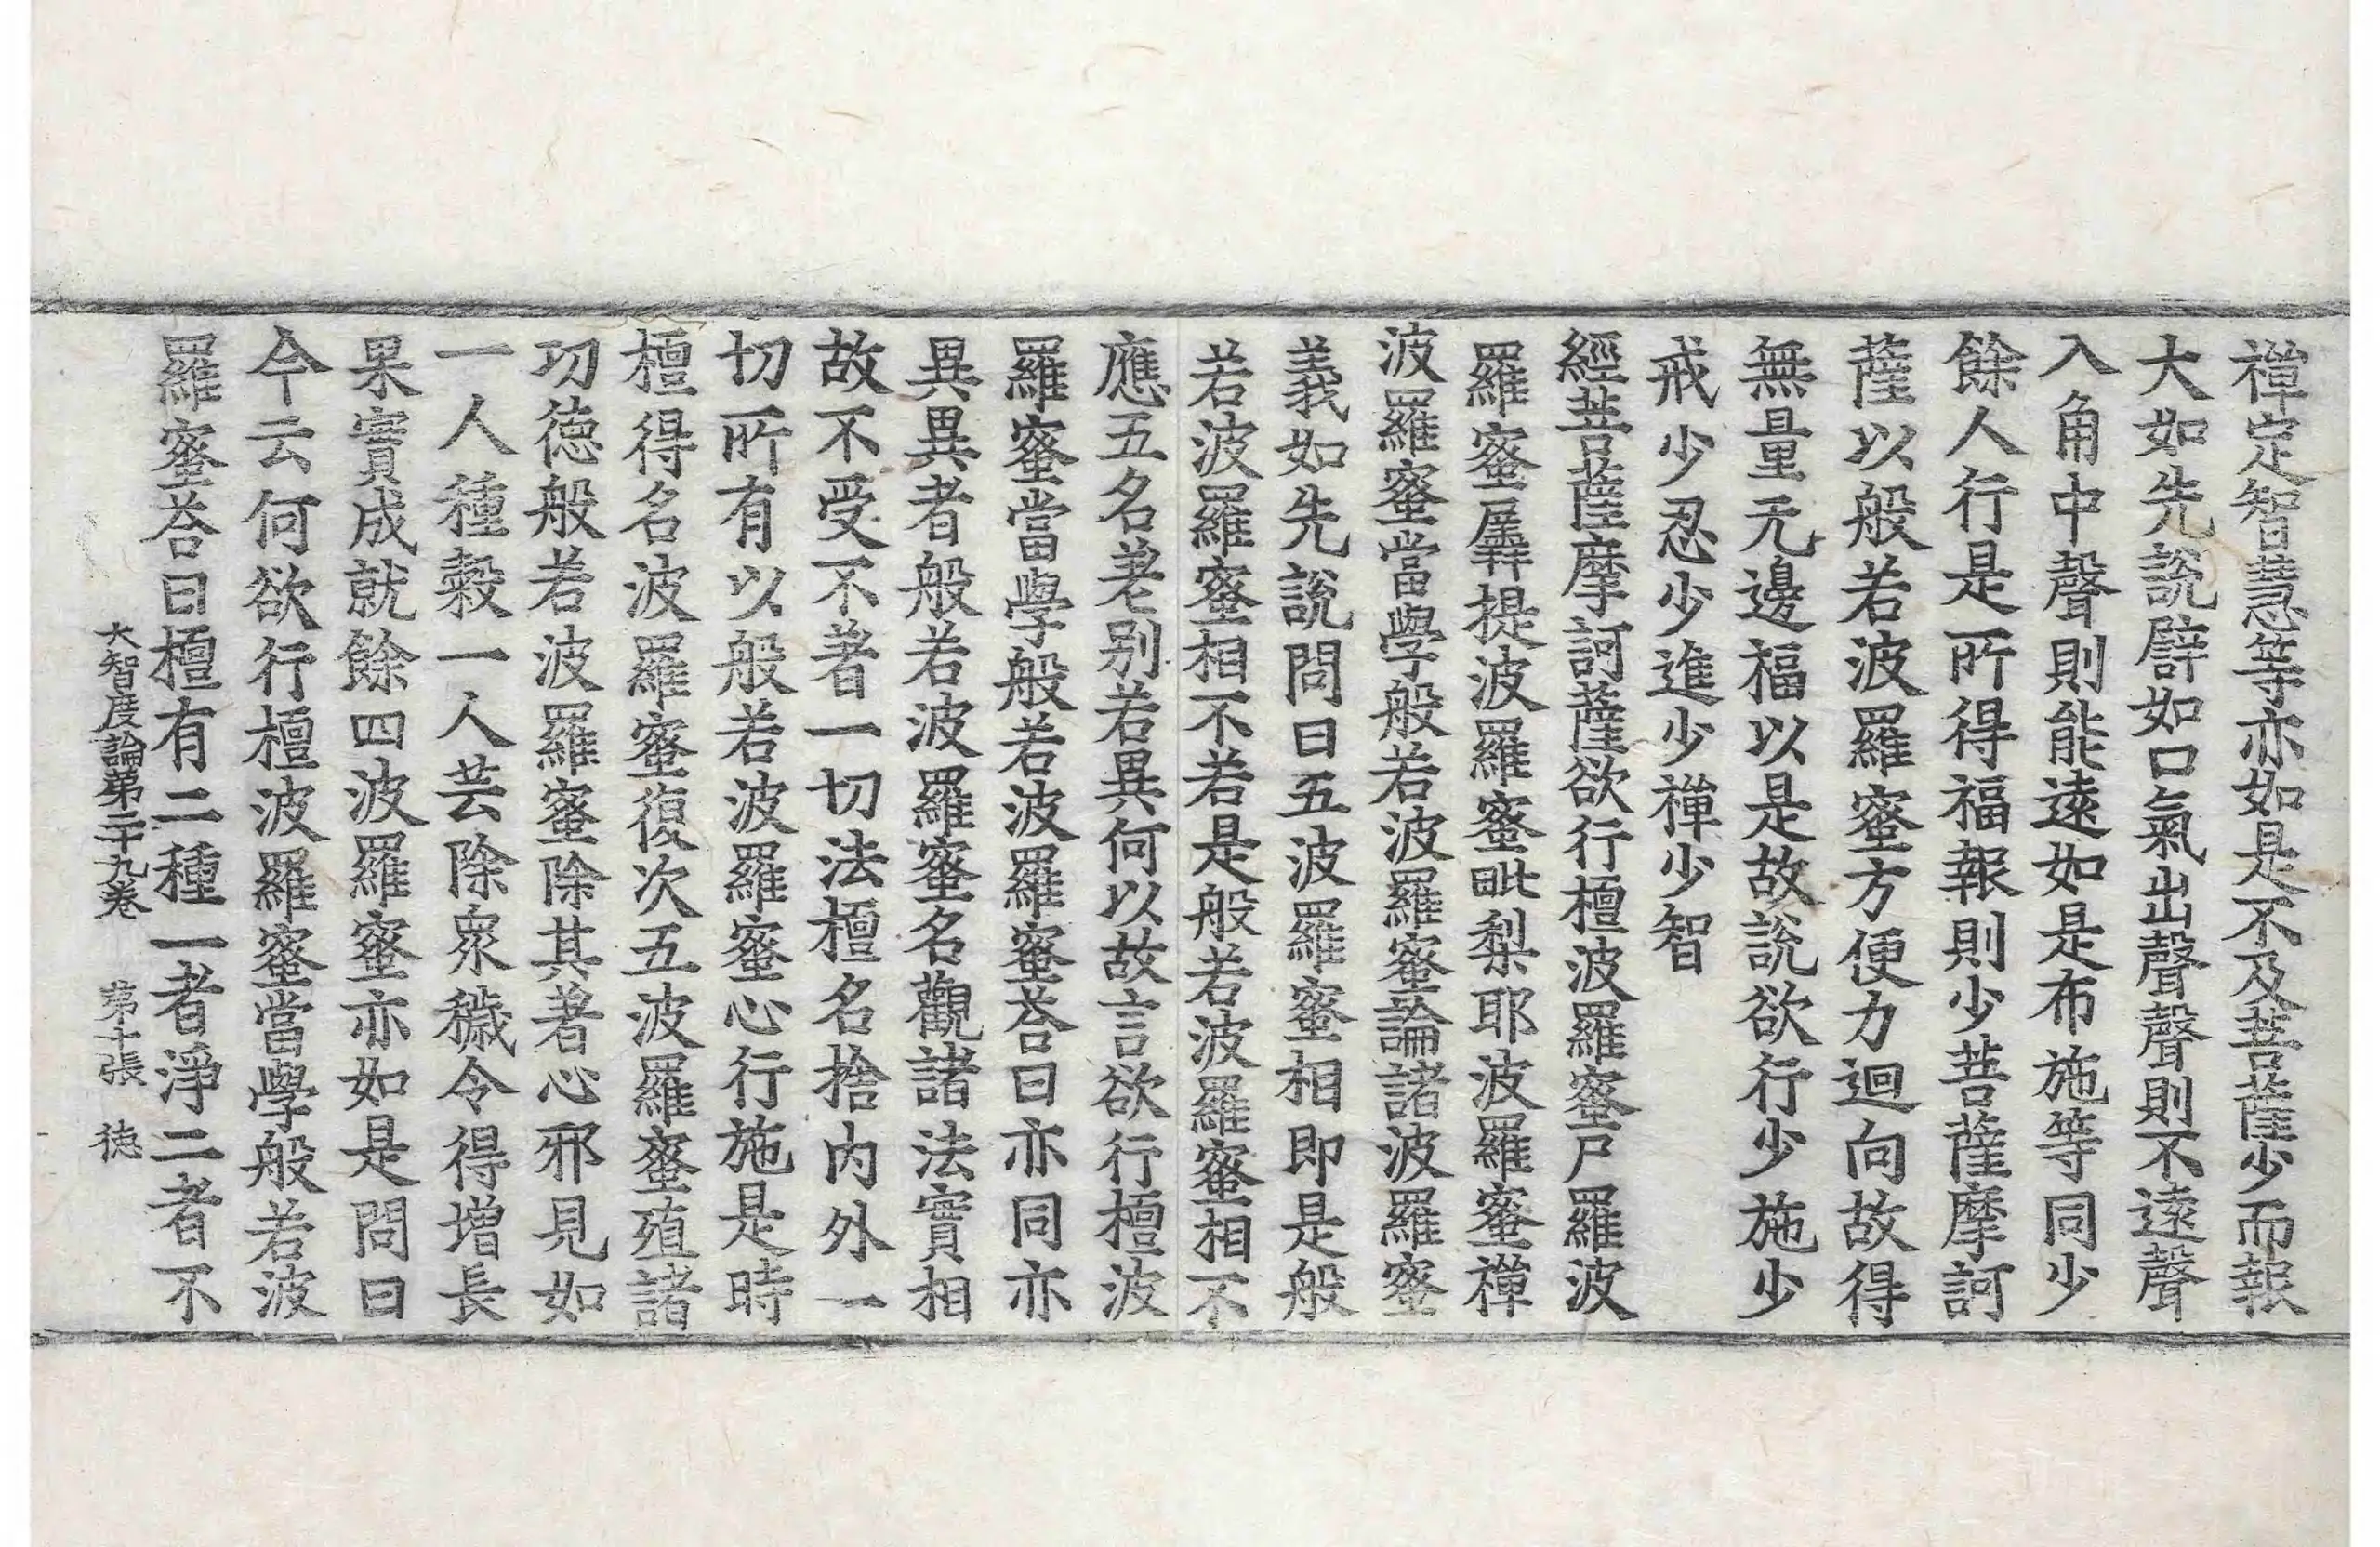 禪定智慧等亦如是不及菩薩少而報
大如先說譬如口氣出聲聲則不遠聲
入角中聲則能遠如是布施等同少
餘人行是所得福報則少菩薩摩訶
薩以般若波羅蜜方便力迴向故得
無量无邊福以是故說欲行少施少
戒少忍少進少禪少智
經菩薩摩訶薩欲行檀波羅蜜尸羅波
羅蜜羼提波羅蜜毗梨耶波羅蜜禪
波羅蜜當學般若波羅蜜論諸波羅蜜
義如先說問曰五波羅蜜相即是般
若波羅蜜相不若是般若波羅蜜相不
應五名差別若異何以故言欲行檀波
羅蜜當學般若波羅蜜荅曰亦同亦
異異者般若波羅蜜名觀諸法實相
故不受不著一切法檀名捨內外一
切所有以般若波羅蜜心行施是時
檀得名波羅蜜復次五波羅蜜殖諸
功德般若波羅蜜除其著心邪見如
一人種穀一人芸除衆穢令得增長
果實成就餘四波羅蜜亦如是問曰
今云何欲行檀波羅蜜當學般若波
羅蜜荅曰檀有二種一者淨二者不
大智度論第二十九卷 第十張 徳